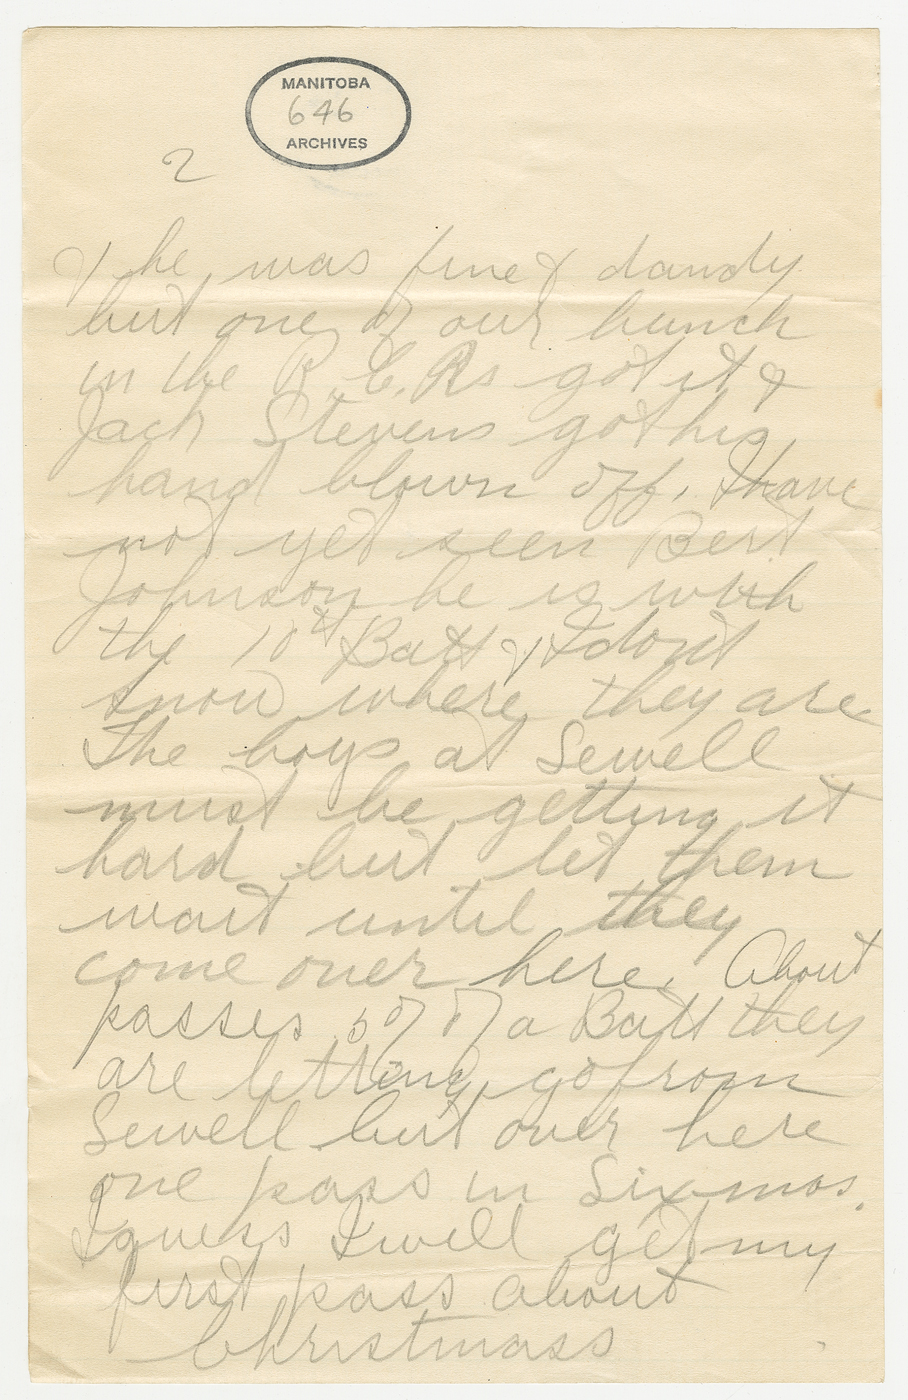 MANITOBA
646
ARCHIVES
2
& he was fine & dandy
but one of our bunch
in the R.C.Rs got it &
Jack Stevens got his
hand blown off, I have
not yet seen Bert
Johnson he is with
the 10th Batt & I dont
know where they are
The boys at Sewell
must be getting it
hard but let them
wait until they
come over here. About
passes of a Batt they
are letting go from
Sewell but over here
one pass in Six mos.
I guess I will get my
first pass about
Christmass